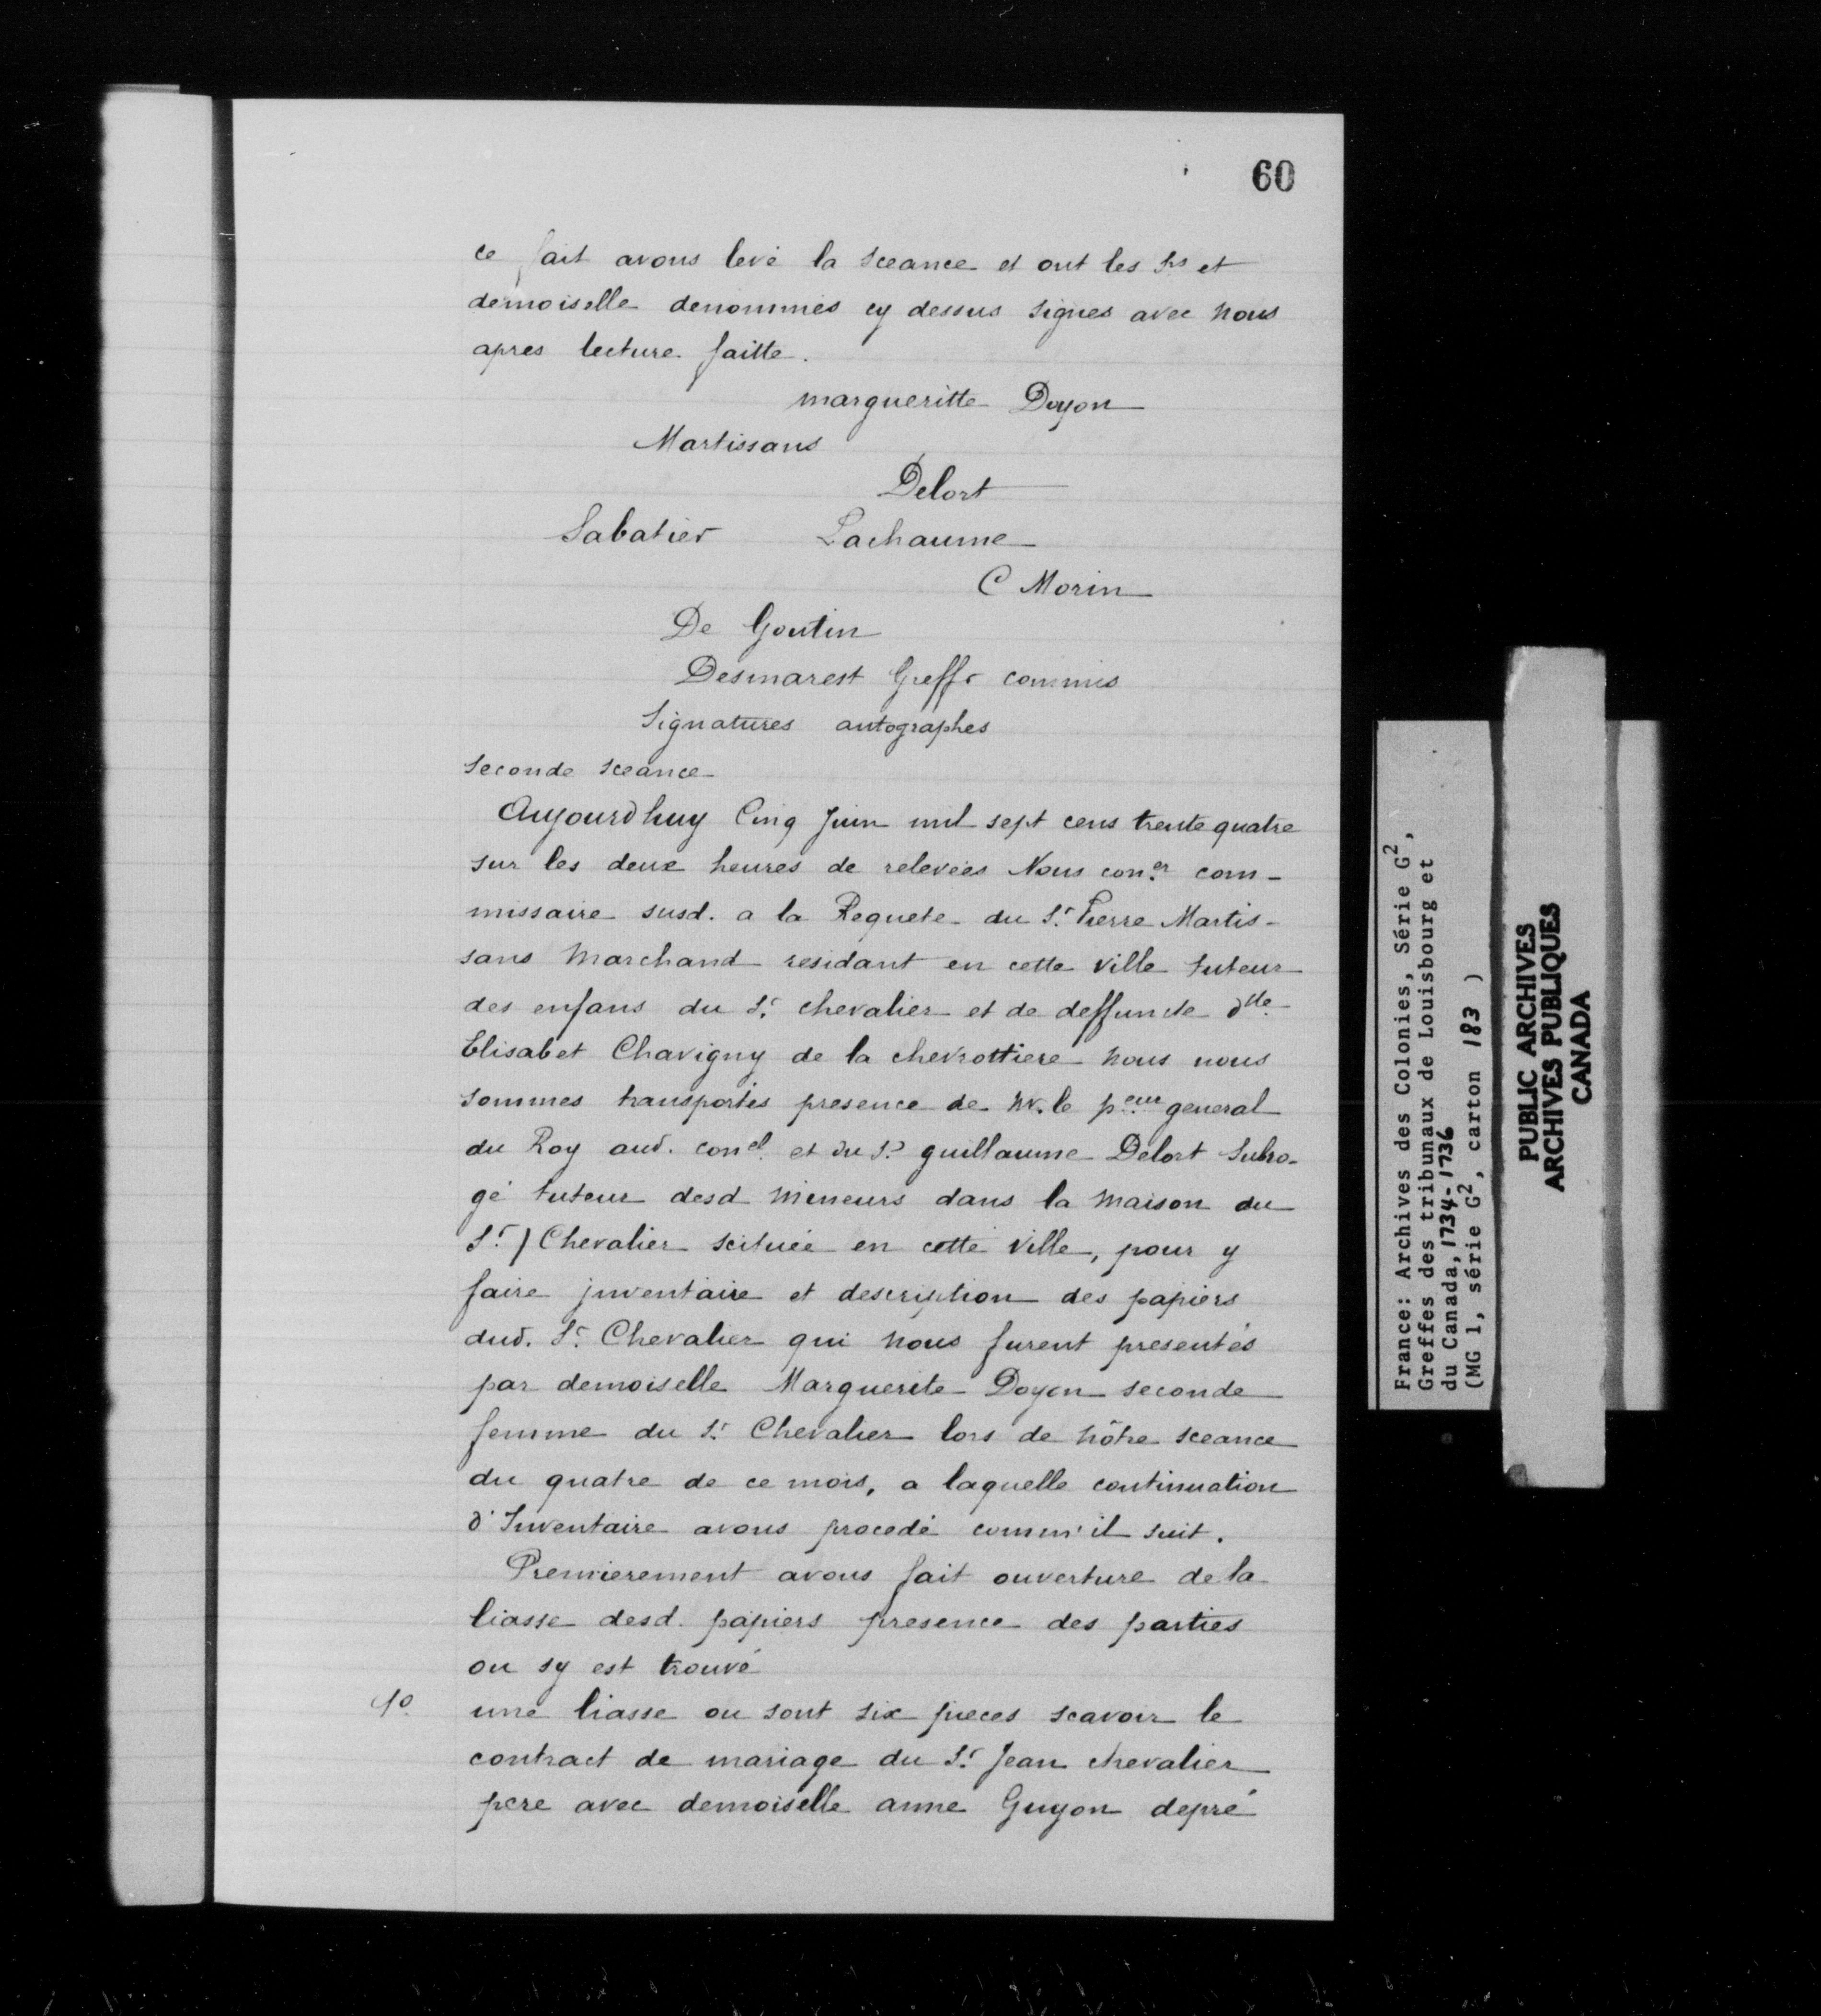 60
ce fait avons levé la sceance et ont les Srs et
demoiselle denommés cy dessus signés avec nous
apres lecture faitte.
margueritte Doyon
Martissans
Delort
Sabatier Lachaume
C Morin
De Goutin
Desmarest Greffr commis
Signatures autographes
seconde sceance
Aujourdhuy Cinq Juin mil sept cens trente quatre
sur les deux heures de relevées Nous con.er com-
missaire susd. a la Requete du Sr. Pierre Martis-
sans Marchand residant en cette ville tuteur
des enfans du Sr. chevalier et de deffuncte dlle.
Elisabet Chavigny de la chevrottiere nous nous
sommes transportés presence de Mr. le p.eur general
du Roy aud. con.el et du Sr. guillaume Delort Subro-
gé tuteur desd mineurs dans la maison du
Sr. ) Chevalier scituée en cette ville, pour y
faire jnventaire et description des papiers
dud. Sr. Chevalier qui nous furent presentés
par demoiselle Marguerite Doyen seconde
femme du Sr. Chevalier lors de nôtre sceance
du quatre de ce mois, a laquelle continuation
d'Inventaire avons procedé comm'il suit.
Premierement avons fait ouverture de la
liasse desd. papiers presence des parties
ou sy est trouvé
1o. une liasse ou sont six pieces scavoir le
contract de mariage du Sr. Jean chevalier
pere avec demoiselle anne Guyon depré
France: Archives des Colonies, Série G2,
Greffes des tribunaux de Louisbourg et
du Canada, 1734-1736
(MG 1, série G2, carton 183 )
PUBLIC ARCHIVES
ARCHIVES PUBLIQUES
CANADA